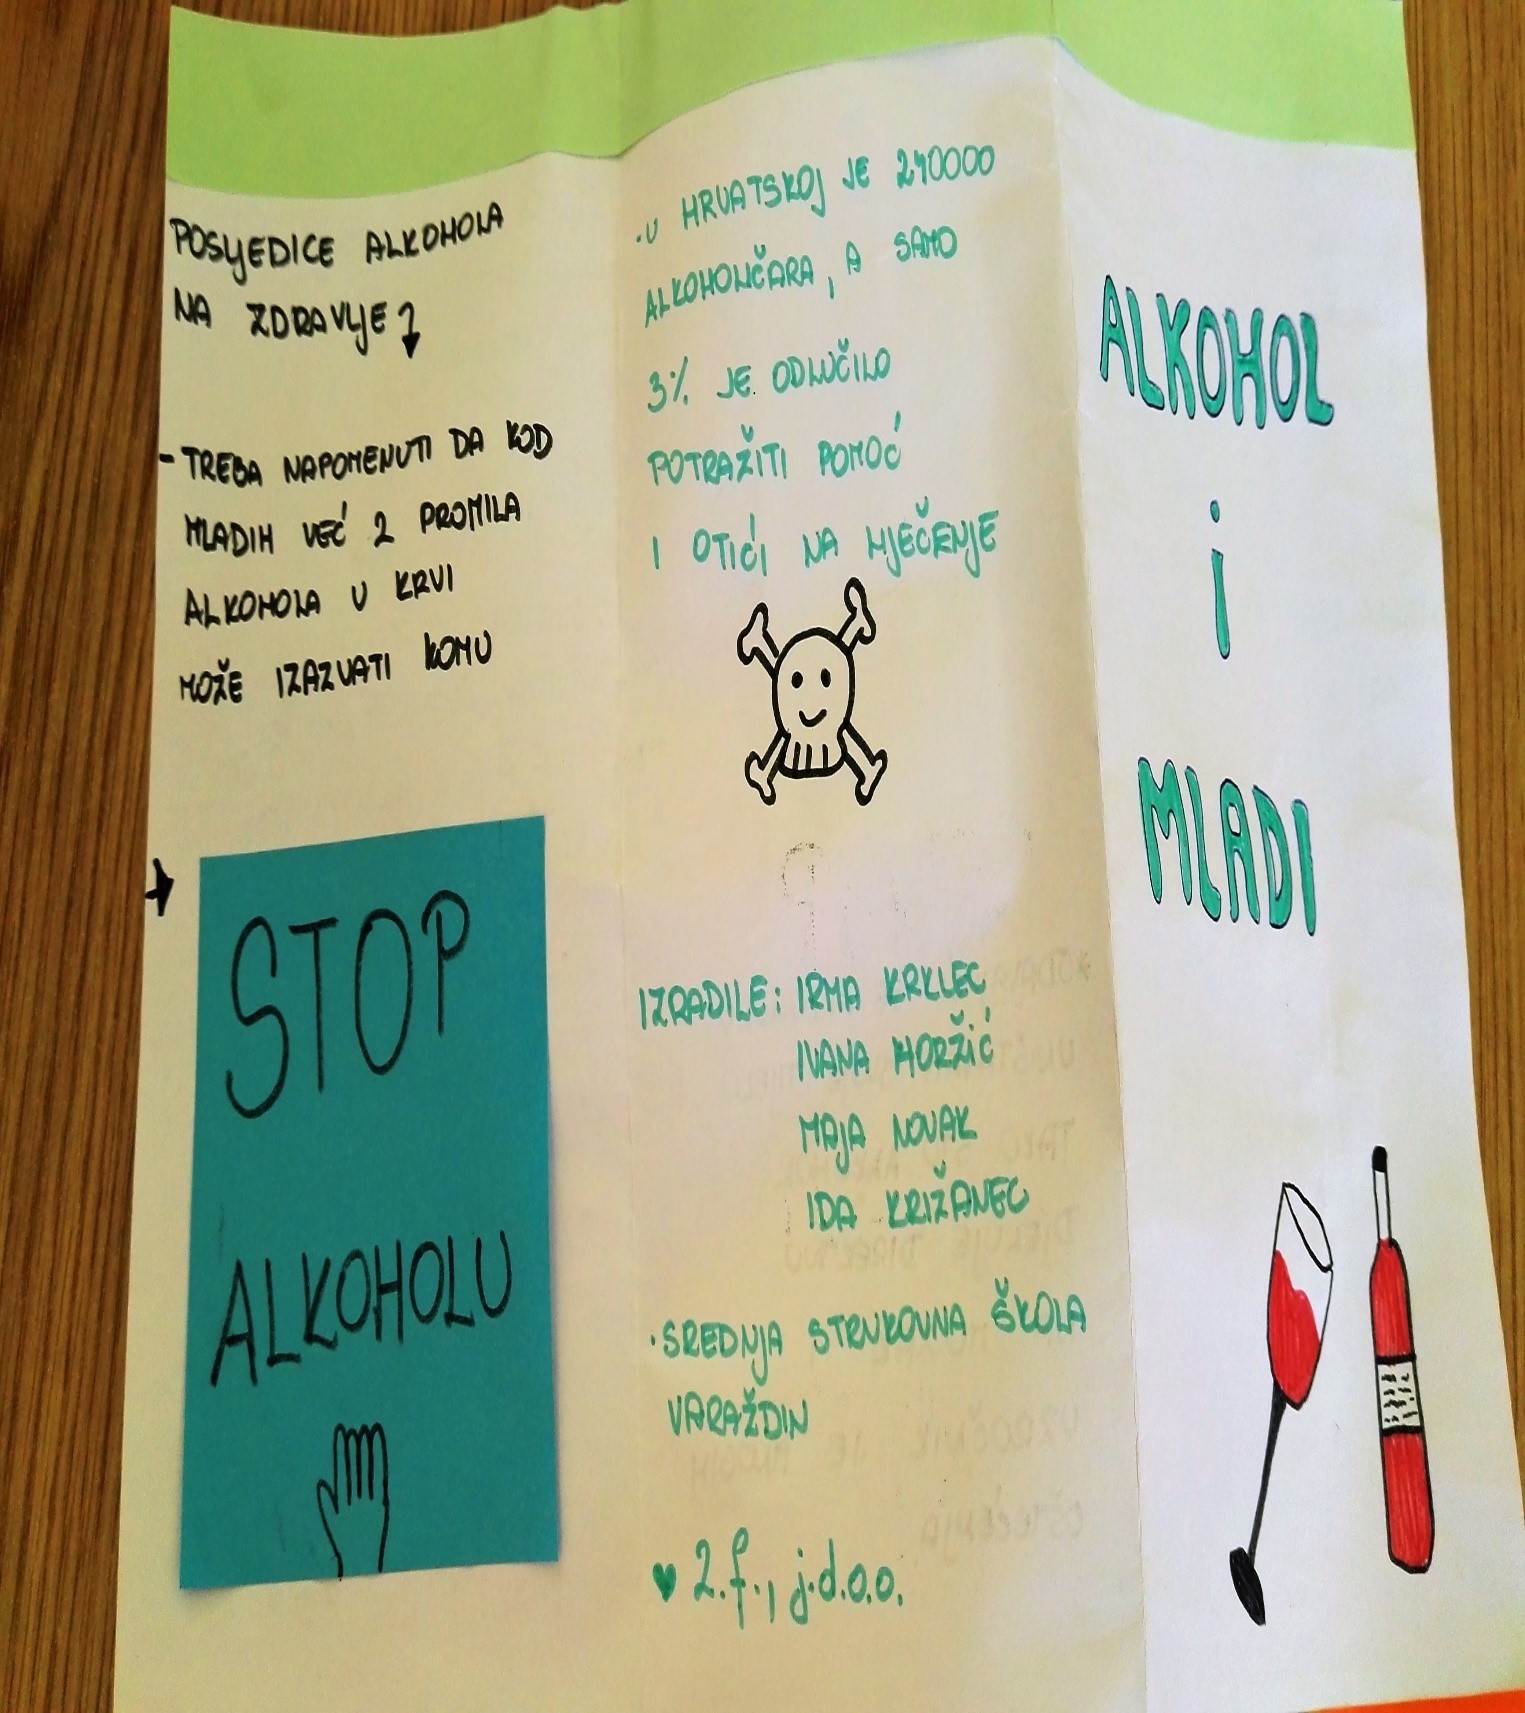 POSLJEDICE ALKOHOLA
NA ZDRAVLJE
- TREBA NAPOMENUTI DA KOD
MLADIH VEĆ 2 PROMILA
ALKOHOLA U KRVI
MOŽE IZAZVATI KOMU
STOP
ALKOHOLU
·U HRVATSKOJ JE 240000
ALKOHOLIČARA, A SAMO
3% JE ODLUČILO
POTRAŽITI POMOĆ
I OTIĆI NA LIJEČENJE
IZRADILE: IRMA KRKLEC
IVANA HORŽIĆ
MAJA NOVAK
IDA KRIŽANEC
·SREDNJA STRUKOVNA ŠKOLA
VARAŽDIN
♥ 2.f., j.d.o.o.
ALKOHOL
i
MLADI